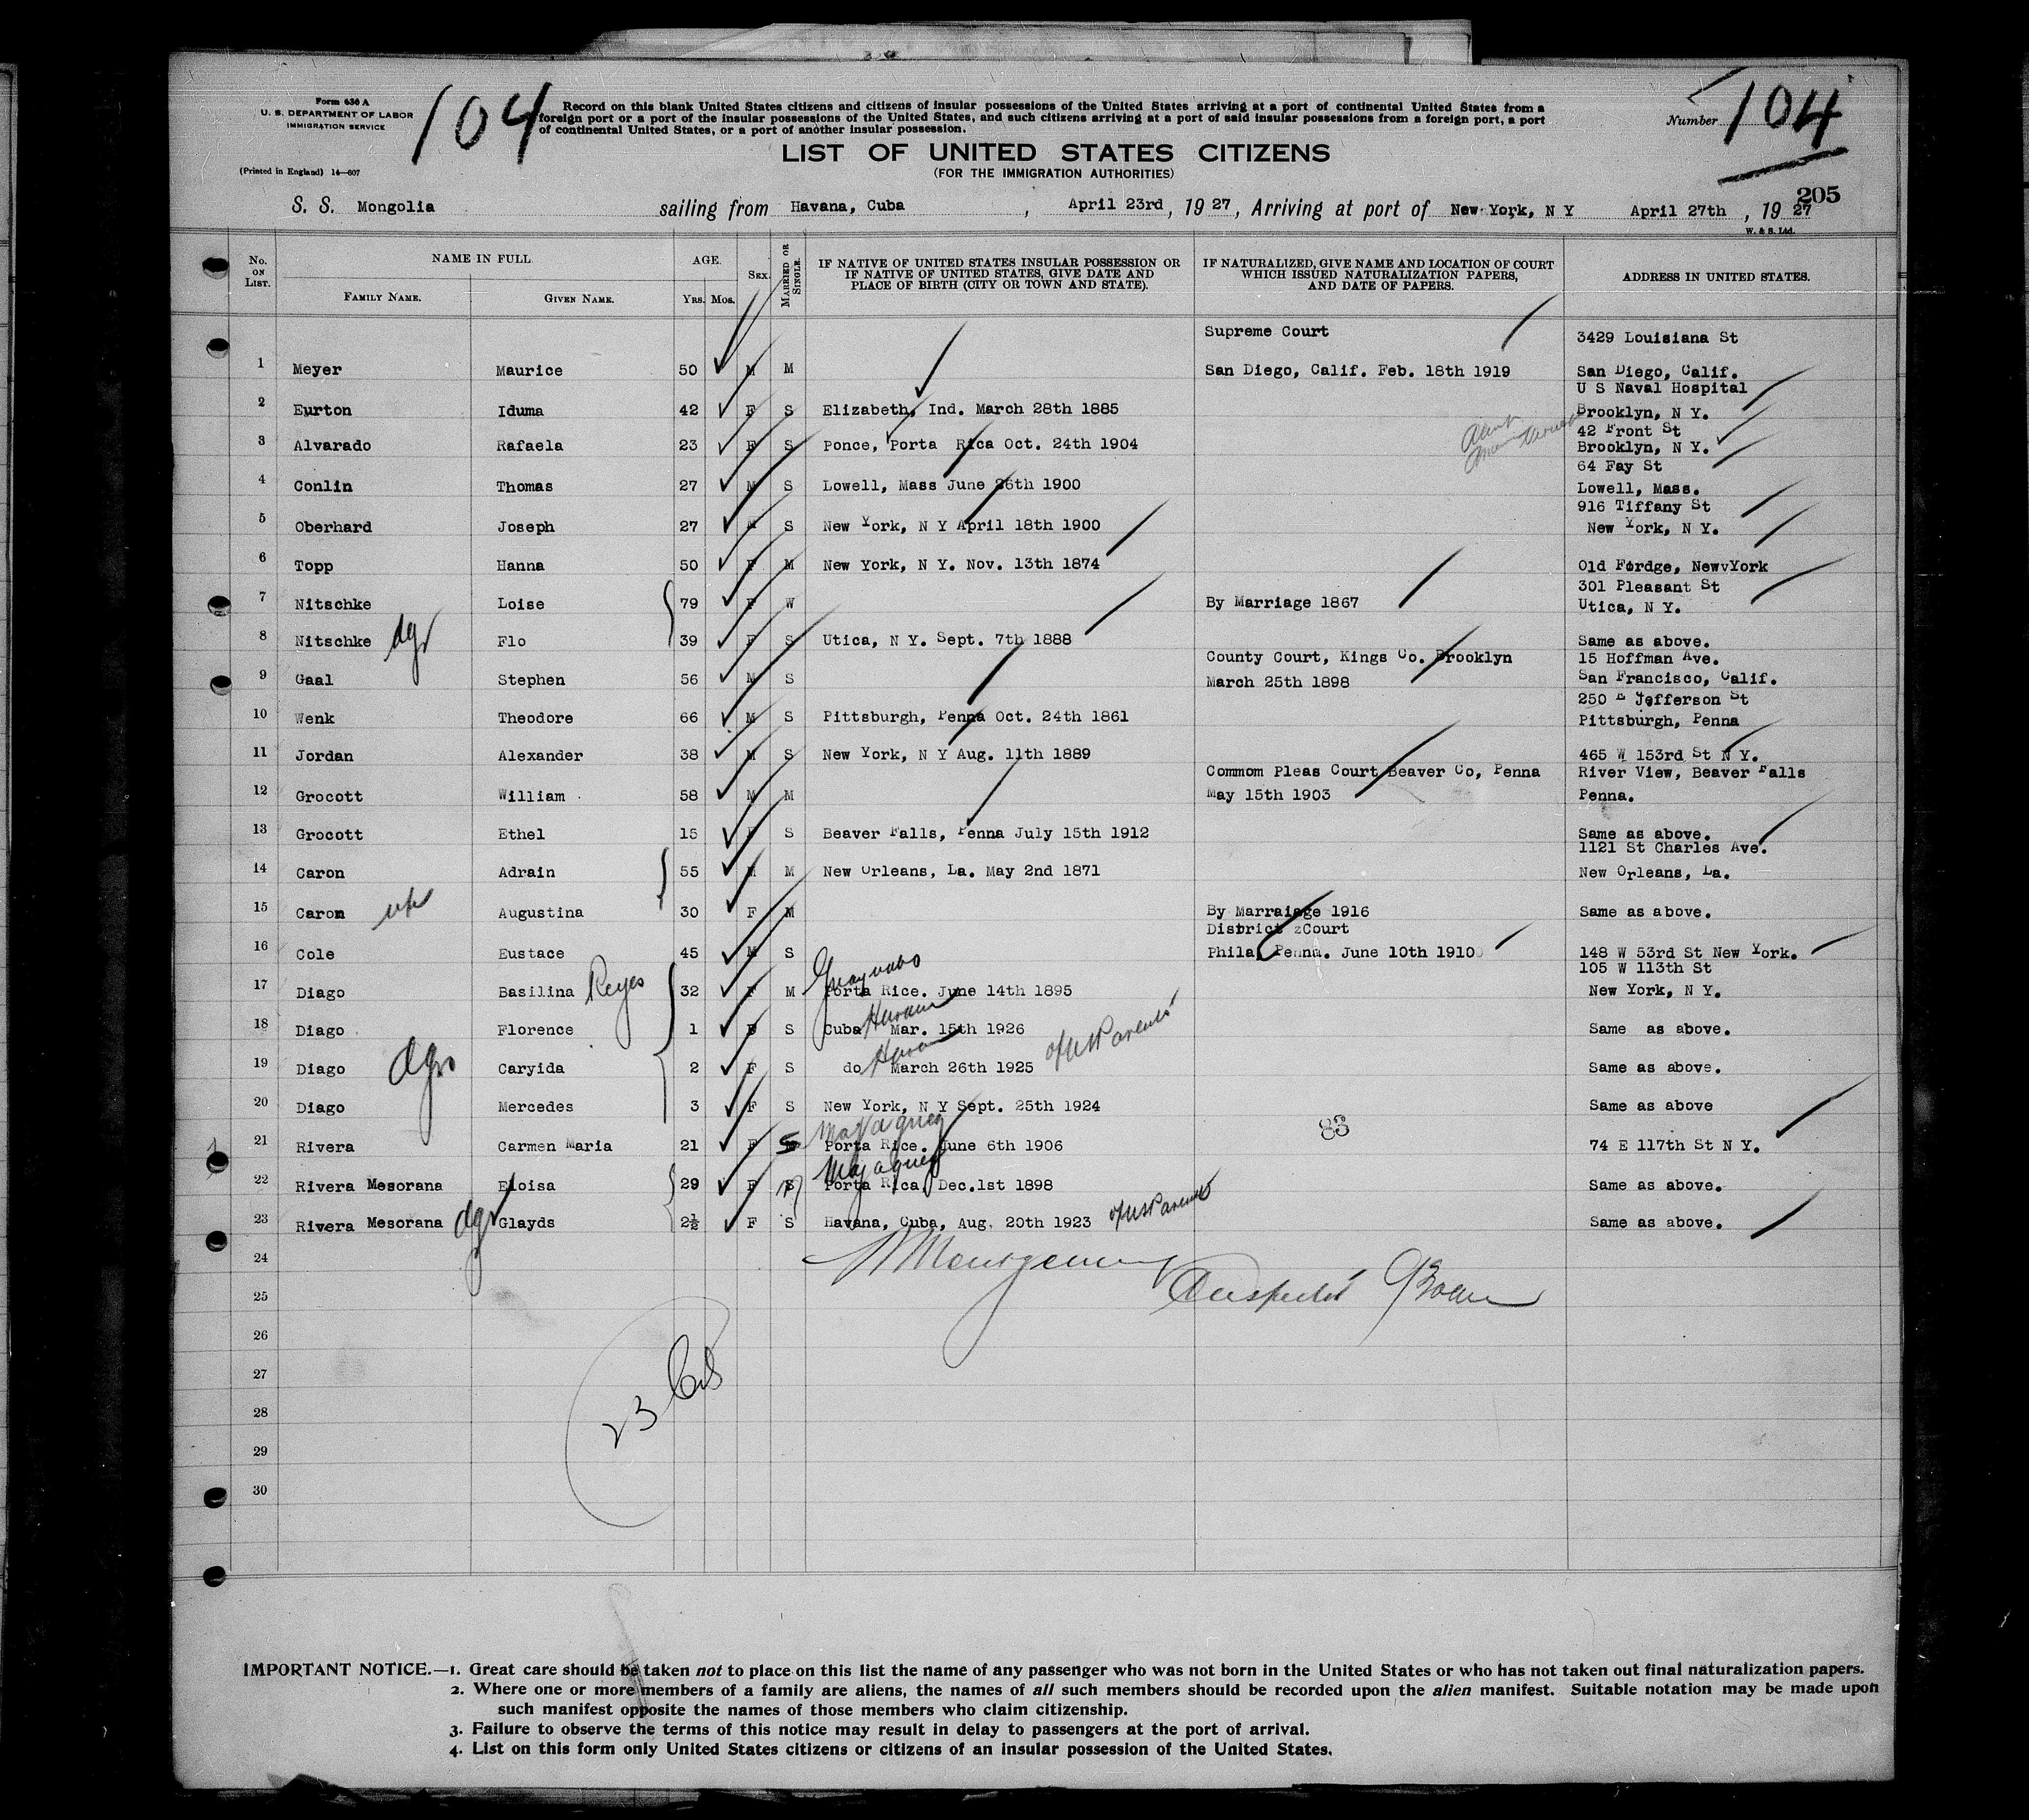 Form 630 A
U. S. DEPARTMENT OF LABOR
IMMIGRATION SERVICE
(Printed in England) 14—607
104
Record on this blank United States citizens and citizens of insular possessions of the United States arriving at a port of continental United States from a
foreign port or a port of the insular possessions of the United States, and such citizens arriving at a port of said insular possessions from a foreign port, a port
of continental United States, or a port of another insular possession.
Number 104
LIST OF UNITED STATES CITIZENS
(FOR THE IMMIGRATION AUTHORITIES)
205
S. S. Mongolia sailing from Havana, Cuba , April 23rd , 19 27 , Arriving at port of New York, N Y April 27th , 19 27
W. & S. Ltd.
No. ON LIST. NAME IN FULL. FAMILY NAME. GIVEN NAME. AGE. YRS. MOS. SEX. MARRIED OR SINGLE. IF NATIVE OF UNITED STATES INSULAR POSSESSION OR IF NATIVE OF UNITED STATES, GIVE DATE AND PLACE OF BIRTH (CITY OR TOWN AND STATE). IF NATURALIZED, GIVE NAME AND LOCATION OF COURT WHICH ISSUED NATURALIZATION PAPERS, AND DATE OF PAPERS. ADDRESS IN UNITED STATES.
Supreme Court 3429 Louisiana St
1 Meyer Maurice 50 M M San Diego, Calif. Feb. 18th 1919 San Diego, Calif.
U S Naval Hospital
2 Eurton Iduma 42 F S Elizabeth, Ind. March 28th 1885 Brooklyn, N Y.
42 Front St
3 Alvarado Rafaela 23 F S Ponce, Porta Rica Oct. 24th 1904 Aunt Brooklyn, N Y.
64 Fay St
4 Conlin Thomas 27 M S Lowell, Mass June 26th 1900 Lowell, Mass.
916 Tiffany St
5 Oberhard Joseph 27 M S New York, N Y April 18th 1900 New York, N Y.
6 Topp Hanna 50 F M New York, N Y. Nov. 13th 1874 Old Fordge, NewvYork
301 Pleasant St
7 Nitschke Loise 79 F W By Marriage 1867 Utica, N Y.
8 Nitschke dgr Flo 39 F S Utica, N Y. Sept. 7th 1888 Same as above.
County Court, Kings Co. Brooklyn 15 Hoffman Ave.
9 Gaal Stephen 56 M S March 25th 1898 San Francisco, Calif.
250 E Jefferson St
10 Wenk Theodore 66 M S Pittsburgh, Penna Oct. 24th 1861 Pittsburgh, Penna
11 Jordan Alexander 38 M S New York, N Y Aug. 11th 1889 465 W 153rd St N Y.
Commom Pleas Court Beaver Co, Penna River View, Beaver Falls
12 Grocott William 58 M M May 15th 1903 Penna.
13 Grocott Ethel 15 F S Beaver Falls, Penna July 15th 1912 Same as above.
1121 St Charles Ave.
14 Caron Adrain 55 M M New Orleans, La. May 2nd 1871 New Orleans, La.
15 Caron Augustina 30 F M By Marraiage 1916 Same as above.
District zCourt
16 Cole Eustace 45 M S Phila, Penna. June 10th 1910 148 W 53rd St New York.
105 W 113th St
Guaynabo
17 Diago Basilina Reyes 32 F M Porta Rice. June 14th 1895 New York, N Y.
18 Diago Florence 1 F S Cuba Havana Mar. 15th 1926 Same as above.
19 Diago dgrs Caryida 2 F S do Havana March 26th 1925 of US Parents Same as above.
20 Diago Mercedes 3 F S New York, N Y Sept. 25th 1924 Same as above
83
Mayaguez
21 Rivera Carmen Maria 21 F S Porta Rice. June 6th 1906 74 E 117th St N Y.
Mayaguez
22 Rivera Mesorana Eloisa 29 F S M Porta Rica, Dec.1st 1898 Same as above.
23 Rivera Mesorana dgr Glayds 2½ F S Havana, Cuba, Aug. 20th 1923 of US Parents Same as above.
24 Montgomery
25 Inspector
26
27
28 23
29
30
IMPORTANT NOTICE.—1. Great care should be taken not to place on this list the name of any passenger who was not born in the United States or who has not taken out final naturalization papers.
2. Where one or more members of a family are aliens, the names of all such members should be recorded upon the alien manifest. Suitable notation may be made upon
such manifest opposite the names of those members who claim citizenship.
3. Failure to observe the terms of this notice may result in delay to passengers at the port of arrival.
4. List on this form only United States citizens or citizens of an insular possession of the United States.